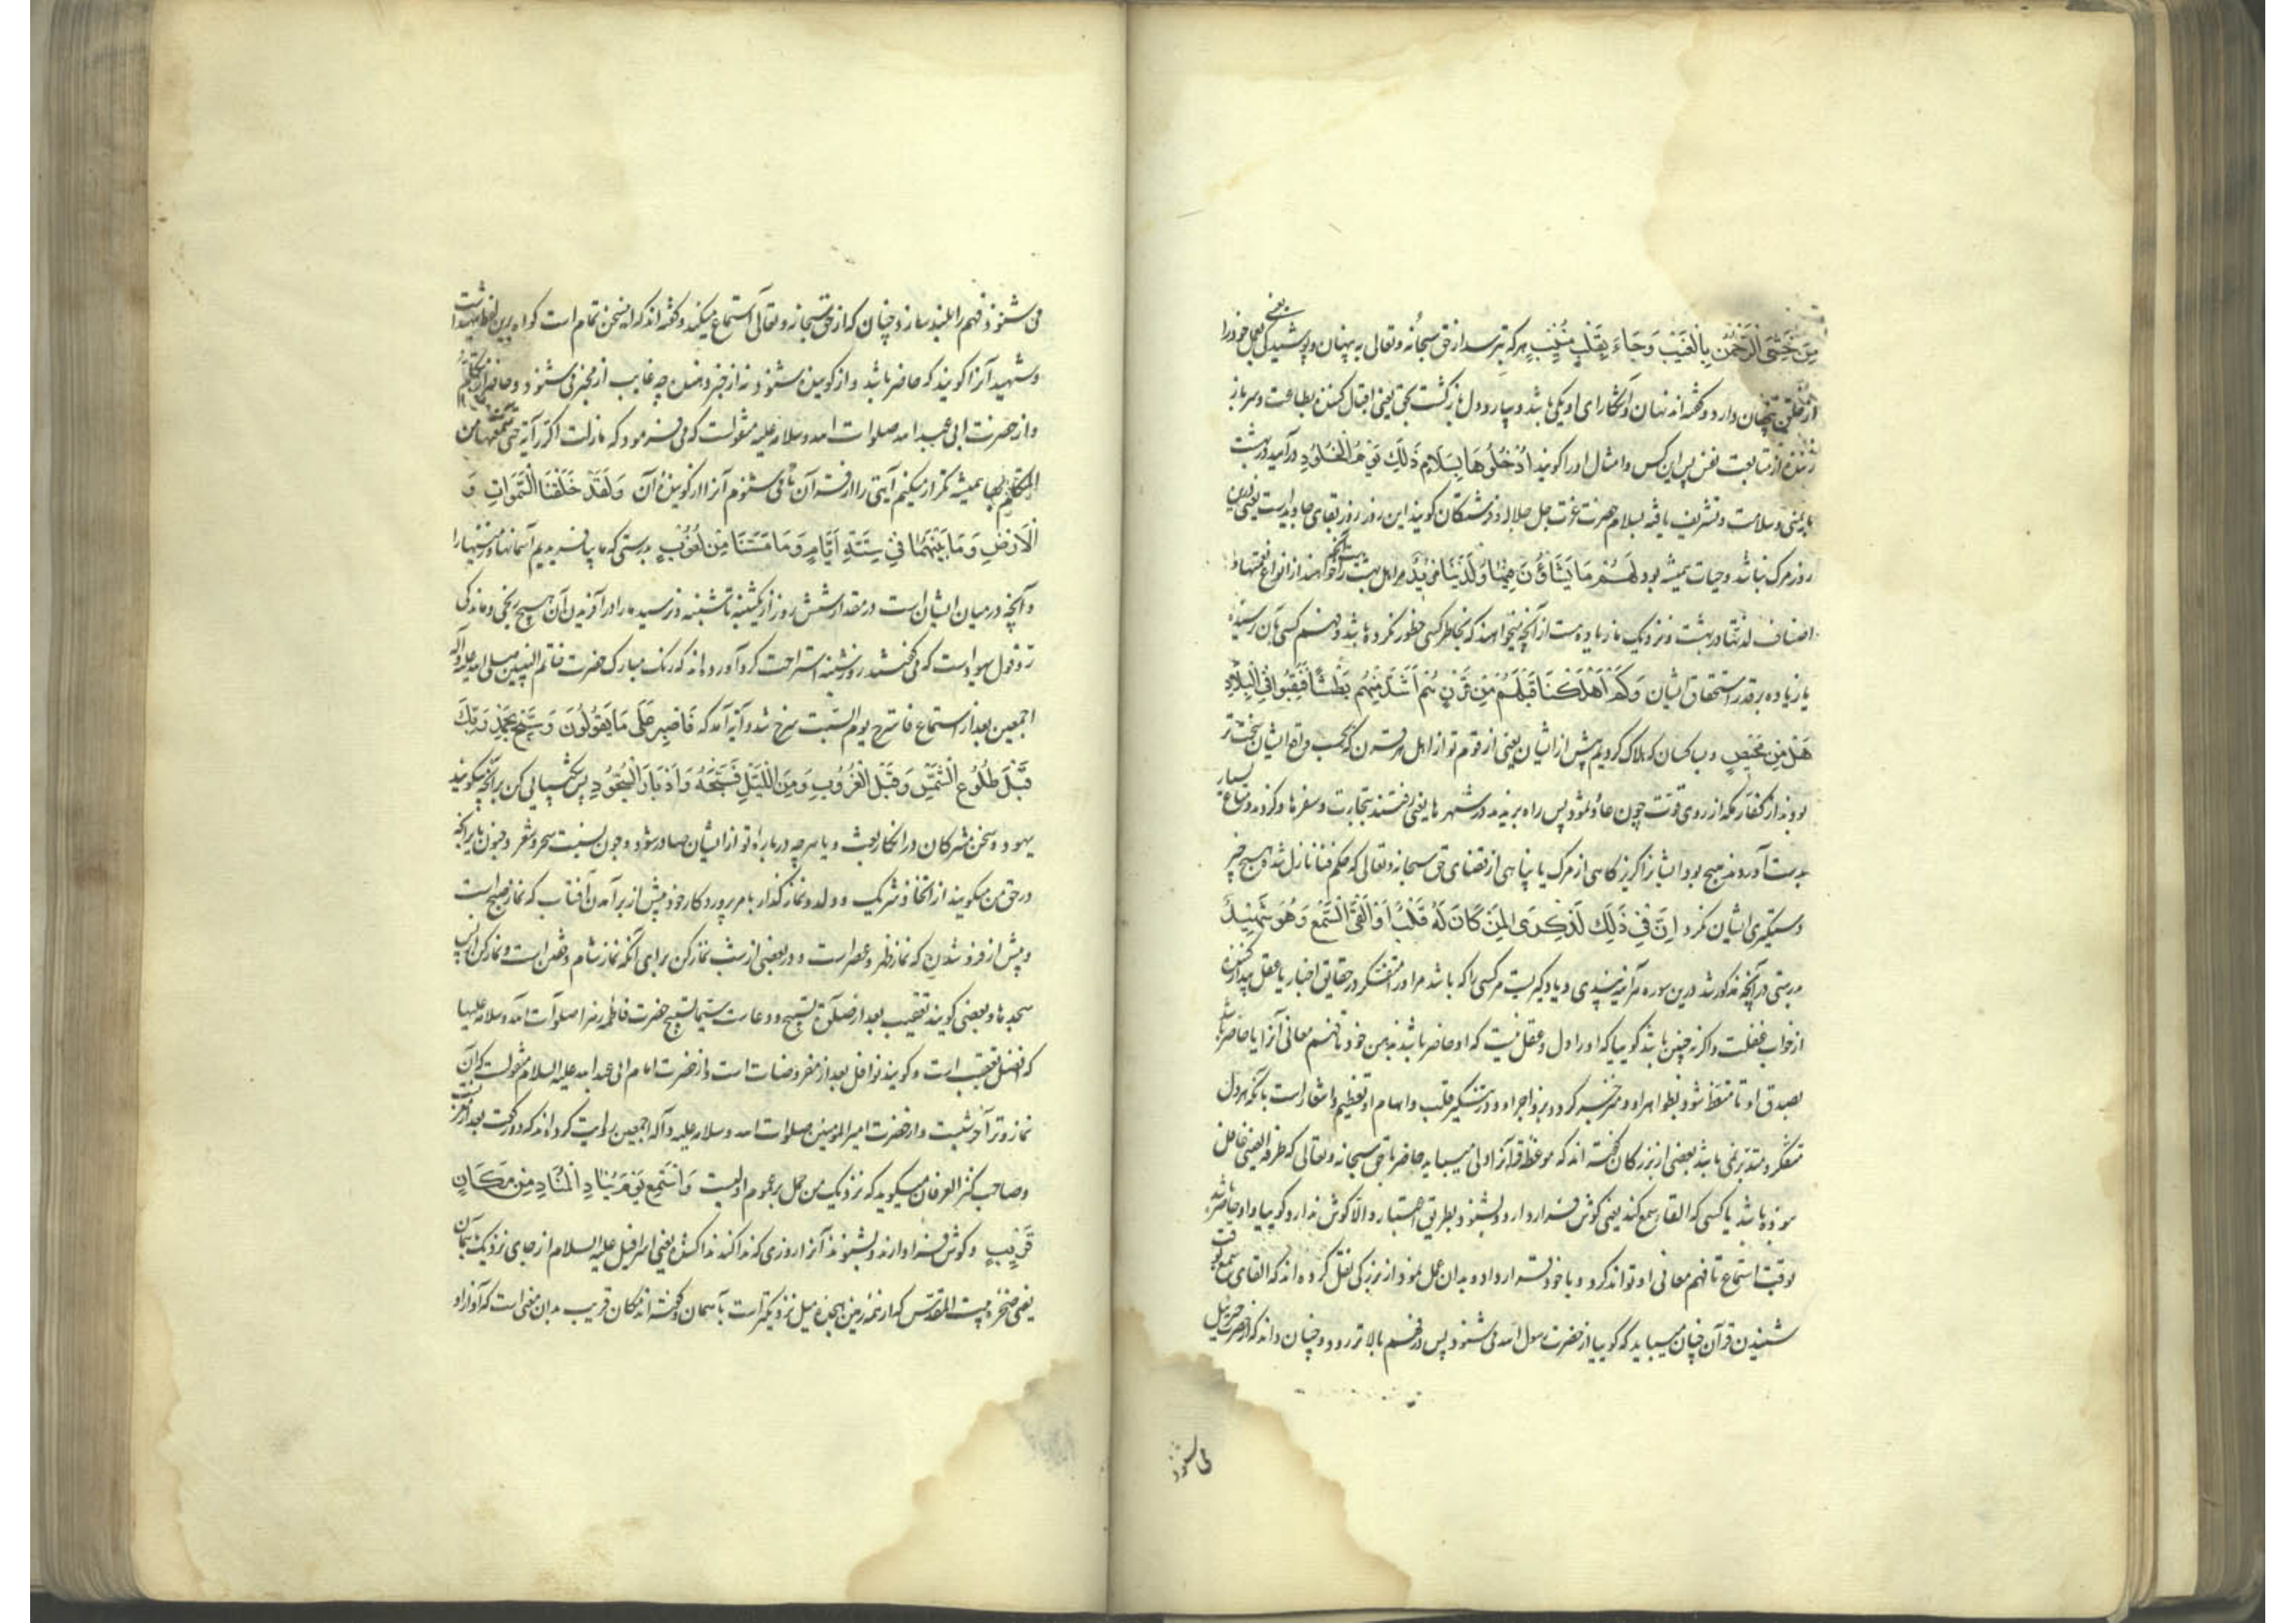 مَنْ خَشِیَ الرَّحْمٰنَ بِالْغَیْبِ وَجَاءَ بِقَلْبٍ مُنِیبٍ هر که بترسد از حق سبحانه وتعالی به پنهان و پوشیدگی یعنی عمل خود را
از خلق پنهان دارد و گفته‌اند نهان و آشکارای او یکی باشد و بیارد دل بازگشت بحق یعنی اقبال کننده بطاعت و سر باز
زننده از متابعت نفس پس این کس و امثال او را گویند اُدْخُلُوهَا بِسَلَامٍ ذٰلِكَ یَوْمُ الْخُلُودِ درآیید در بهشت
بایمنی و سلامت و تشریف یافته بسلام حضرت عزت جل جلاله و فرشتگان گویند این روز روز بقای جاوید است یعنی درین
روز مرگ نباشد و حیات همیشه بود لَهُمْ مَا یَشَاؤُنَ فِیهَا وَلَدَیْنَا مَزِیدٌ مر اهل بهشت راست آنچه خواهند از انواع نعمتها و
اصناف لذتها در بهشت و نزدیک ما زیاده هست از آنچه میخواهند که بخاطر کسی خطور نکرده باشد و فهم کسی بآن نرسیده
یا زیاده بر قدر استحقاق ایشان وَكَمْ اَهْلَكْنَا قَبْلَهُمْ مِنْ قَرْنٍ هُمْ اَشَدُّ مِنْهُمْ بَطْشًا فَنَقَّبُوا فِی الْبِلَادِ
هَلْ مِنْ مَحِیصٍ و بسا کسان که هلاک کردیم پیش از ایشان یعنی از قوم تو از اهل هر قرن که بحسب واقع ایشان سخت‌تر
بودند از کفار مکه از روی قوت چون عاد و ثمود پس راه بریدند در شهرها یعنی رفتند بتجارت و سفرها کردند و متاع بسیار
بدست آوردند هیچ بود ایشانرا گریزگاهی از مرگ یا پناهی از قضای حق سبحانه وتعالی که حکم فنا نازل شد و هیچ چیز
دستگیری ایشان نکرد اِنَّ فِی ذٰلِكَ لَذِكْرٰی لِمَنْ كَانَ لَهُ قَلْبٌ اَوْ اَلْقَی السَّمْعَ وَهُوَ شَهِیدٌ
بدرستی در آنچه مذکور شد درین سوره هر آینه پندی و یادکریست مر کسی را که باشد مر او را دل متفکر در حقایق اخبار یا عقل بیدار کننده
از خواب غفلت و اگر نه چنین باشد گوییا که او را دل و عقل نیست که او حاضر باشد بذهن خود تا فهم معانی آن یا حاضر باشد
بصدق او تا متعظ شود بظواهر او و منزجر گردد بزواجر او و در تنکیر قلب و ابهام او تعظیم و اشعار است بآنکه هر دل
متفکر و متدبر نمی باشد بعضی از بزرگان گفته‌اند که موعظه قرآنرا دلی میباید حاضر با حق سبحانه وتعالی که طرفة العینی غافل
نبوده باشد یا کسی که القاء سمع کند یعنی گوش فرا دارد و بشنود بطریق اعتبار و الا گوش ندارد گوییا و او حاضر باشد
بوقت استماع تا فهم معانی او تواند کرد و با خود قرار داد و بدان عمل نمود از بزرگی نقل کرده‌اند که القای سمع بوقت
شنیدن قرآن چنان میباید که گوییا از حضرت رسول الله می شنود پس در فهم بالاتر رود و چنان داند که از حضرت جبرئیل
می شنود
می شنود و فهم را بلند سازد چنان که از حق سبحانه وتعالی استماع میکند و گفته‌اند که این سخن تمام است گواه برین لفظ شهید است
و شهید آنرا گویند که حاضر باشد و از گوینده شنود نه از خبر دهنده چه غایب از مخبر می شنود و حاضر از متکلم
و از حضرت ابی عبدالله صلوات الله وسلامه علیه منقولست که می فرمود که ما زلت اکرر آیة حتی سمعتها من
المتکلم بها همیشه تکرار میکنم آیتی را از قرآن تا می شنوم آنرا از گوینده آن وَلَقَدْ خَلَقْنَا السَّمٰوَاتِ وَ
الْاَرْضَ وَمَا بَیْنَهُمَا فِی سِتَّةِ اَیَّامٍ وَمَا مَسَّنَا مِنْ لُغُوبٍ بدرستی که ما بیافریدیم آسمانها و زمینها را
و آنچه در میان ایشان است در مقدار شش روز از یکشنبه تا شنبه و نرسید ما را در آفریدن آن هیچ رنجی و ماندگی
رد قول یهود است که می گفتند روز شنبه استراحت کرد آورده‌اند که رنگ مبارک حضرت خاتم النبیین صلی الله علیه وآله
اجمعین بعد از استماع فاسترح یوم السبت سرخ شد و آیه آمد که فَاصْبِرْ عَلٰی مَا یَقُولُونَ وَسَبِّحْ بِحَمْدِ رَبِّكَ
قَبْلَ طُلُوعِ الشَّمْسِ وَقَبْلَ الْغُرُوبِ وَمِنَ اللَّیْلِ فَسَبِّحْهُ وَاَدْبَارَ السُّجُودِ پس شکیبائی کن بر آنچه میگویند
یهود و سخن مشرکان در انکار بعث و یا هر چه درباره تو از ایشان صادر شود چون نسبت سحر و شعر و جنون یا بر آنچه
در حق من میگویند از اتخاذ شریک و ولد و نماز گذار با مر پروردگار خود پیش از برآمدن آفتاب که نماز صبح است
و پیش از فرو شدن که نماز ظهر و عصر است و در بعضی از شب نماز کن برای آنکه نماز شام و خفتن است و نماز کن از پس
سجده‌ها و بعضی گویند تعقیب بعد از صلوة تسبیح و دعاست سیما تسبیح حضرت فاطمه زهرا صلوات الله وسلامه علیها
که افضل تعقیب است و گویند نوافل بعد از مفروضات است و از حضرت امام ابی عبدالله علیه السلام منقولست که آن
نماز وتر آخر شبست و از حضرت امیرالمومنین صلوات الله وسلامه علیه وآله اجمعین روایت کرده‌اند که دو رکعت بعد از مغربست
وصاحب کنز العرفان میگوید که نزدیک من حمل بر عموم اولیست وَاسْتَمِعْ یَوْمَ یُنَادِ الْمُنَادِ مِنْ مَكَانٍ
قَرِیبٍ و گوش فرا دارند و بشنوند آنرا روزی که ندا کند ندا کننده یعنی اسرافیل علیه السلام از جای نزدیک بآسمان
یعنی صخره بیت المقدس که از همه زمین هجده میل نزدیکتر است بآسمان و گفته‌اند مکان قریب بدان معنی است که آواز او